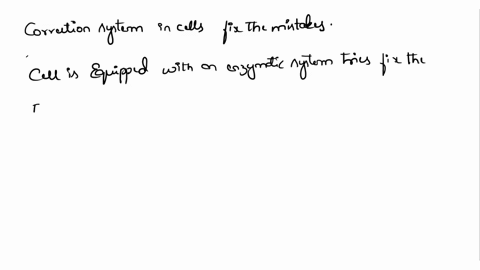 Correction system in cells fix the mistakes.
Cell is Equipped with an enzymatic system tries fix the
r